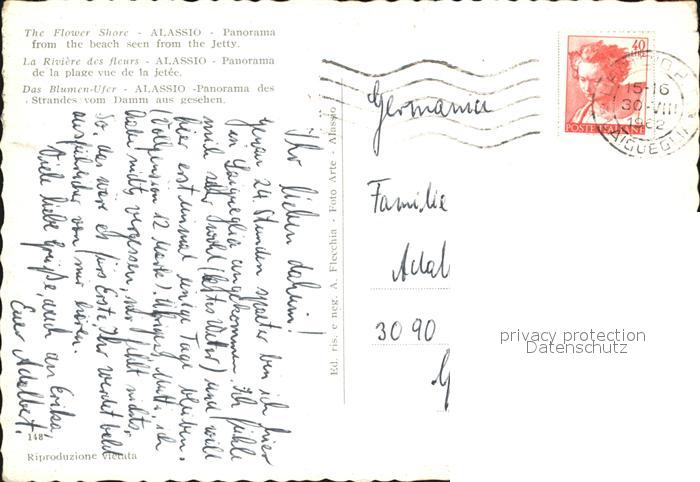 The Flower Shore - ALASSIO - Panorama
from the beach seen from the Jetty.
La Rivière des fleurs - ALASSIO - Panorama
de la plage vue de la jetée.
Das Blumen-Ufer - ALASSIO - Panorama des
Strandes vom Damm aus gesehen.
Ihr lieben daheim!
genau 24 Stunden später bin ich hier
in Laigueglia angekommen. Ich fühle
mich sehr wohl (bestes Wetter) und will
hier erst einmal einige Tage bleiben.
Vollpension 12 Mark). Übrigens, Mutti, ich
habe nichts vergessen, mir fehlt nichts.
So, das wäre es fürs Erste. Ihr werdet bald
ausführlicher von mir hören.
Viele liebe Grüße, auch an Erika,
Euer Adalbert.
148
Riproduzione vietata
Ed. ris. e neg. A. Flecchia - Foto Arte - Alassio
40
LIRE
POSTE ITALIANE
15-16
30-VIII
1962
LAIGUEGLIA
Germania
Familie
Adal
30 90
privacy protection
Datenschutz